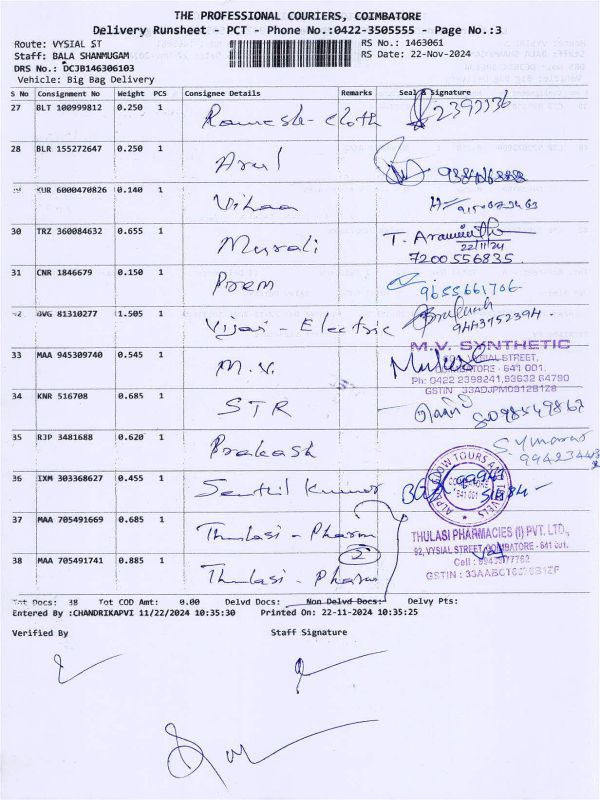 THE PROFESSIONAL COURIERS, COIMBATORE
Delivery Runsheet - PCT - Phone No.:0422-3505555 - Page No.:3
Route: VYSIAL ST
RS No.: 1463061
Staff: BALA SHANMUGAM
RS Date: 22-Nov-2024
DRS No.: DCJB146306103
Vehicle: Big Bag Delivery
S No Consignment No Weight PCS Consignee Details Remarks Seal & Signature
27 BLT 100999812 0.250 1 Ramesh - cloth
28 BLR 155272647 0.250 1 Arul
KUR 6000470826 0.140 1 Vihaa
30 TRZ 360084632 0.655 1 Murali T. Aravinth
22/11/24
7200556835
31 CNR 1846679 0.150 1 Prem 9655661706
OVG 81310277 1.505 1 Vijai - Electric Prakash
9443752394
33 MAA 945309740 0.545 1 M.V.
M.V. SYNTHETIC
VYSIAL STREET,
COIMBATORE - 641 001.
Ph: 0422 2398241, 93632 64790
34 KNR 516708 0.685 1 STR
35 RJP 3481688 0.620 1 Prakash
36 IXM 303368627 0.455 1 Senthil Kumar
641 001
37 MAA 705491669 0.685 1 Thulasi - Pharm
THULASI PHARMACIES (I) PVT. LTD.,
92, VYSIAL STREET, COIMBATORE - 641 001.
38 MAA 705491741 0.885 1 Thulasi - Pharm 2
Tot Docs: 38 Tot COD Amt: 0.00 Delvd Docs: Non Delvd Docs: Delvy Pts:
Entered By :CHANDRIKAPVI 11/22/2024 10:35:30 Printed On: 22-11-2024 10:35:25
Verified By Staff Signature